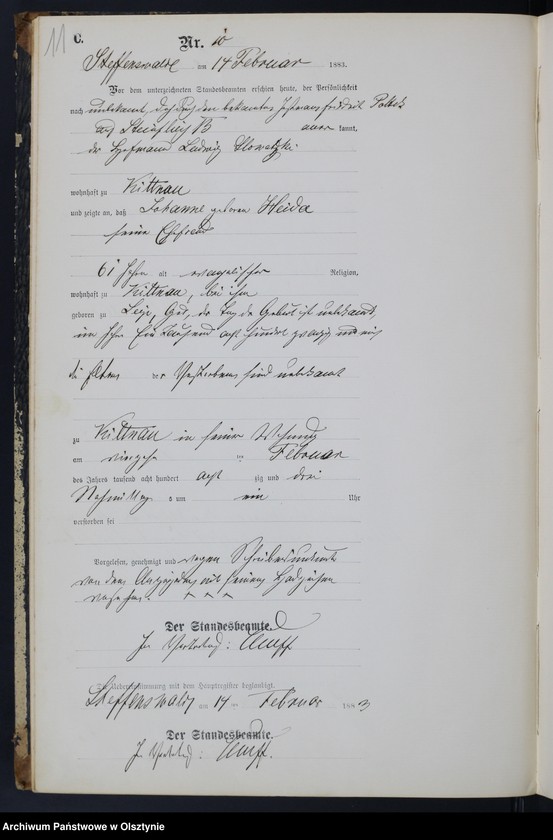 11
C.
Nr. 10
Steffenswalde am 14 Februar 1883.
Vor dem unterzeichneten Standesbeamten erschien heute, der Persönlichkeit
nach unbekannt, durch den bekannten
kannt,
der Ludwig Slowetzki
wohnhaft zu Kittnau
und zeigte an, daß Johanne geborene Heida
seine Ehefrau
61 Jahre alt evangelischer Religion,
wohnhaft zu Kittnau, bei ihm
geboren zu Gut, der Tag der Geburt ist unbekannt,
im Jahre Ein Tausend acht hundert zwanzig und eins
die Eltern der Verstorbenen sind unbekannt
zu Kittnau in seiner Wohnung
am vierzehn ten Februar
des Jahres tausend acht hundert acht zig und drei
Nachmittag s um ein Uhr
verstorben sei
Vorgelesen, genehmigt und wegen Schreibensunkunde
von dem Anzeigenden mit seinem Handzeichen
versehen. + + +
Der Standesbeamte.
In Vertretung:
Die Uebereinstimmung mit dem Hauptregister beglaubigt.
Steffenswalde am 14 ten Februar 1883
Der Standesbeamte.
In Vertretung:
Archiwum Państwowe w Olsztynie